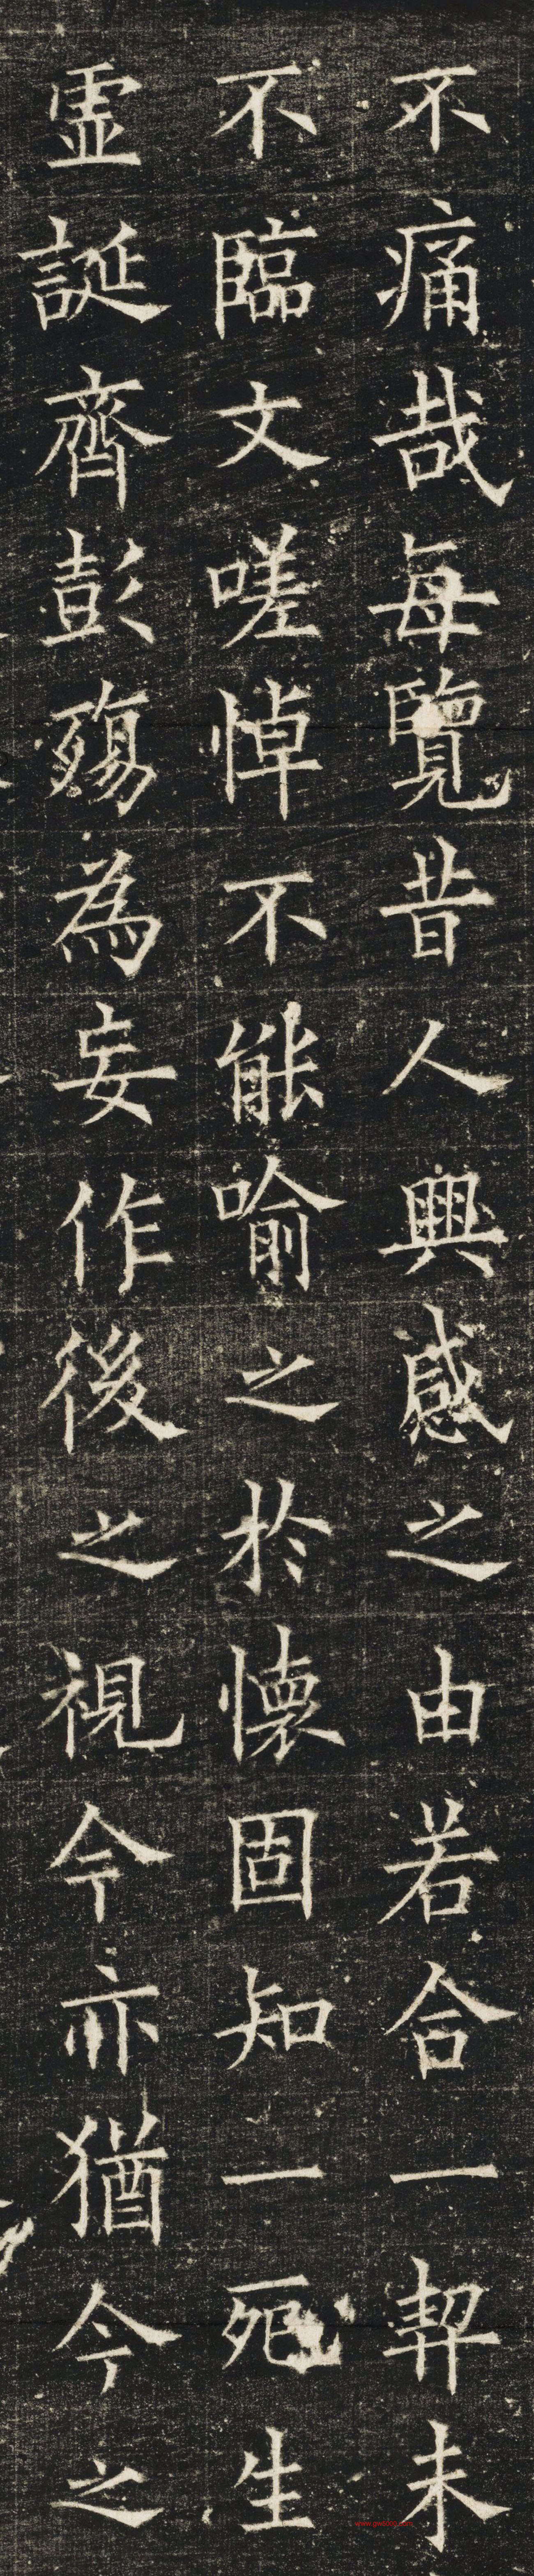 不痛哉每覽昔人興感之由若合一契未
不臨文嗟悼不能喻之於懷固知一死生
虛誕齊彭殤為妄作後之視今亦猶今之